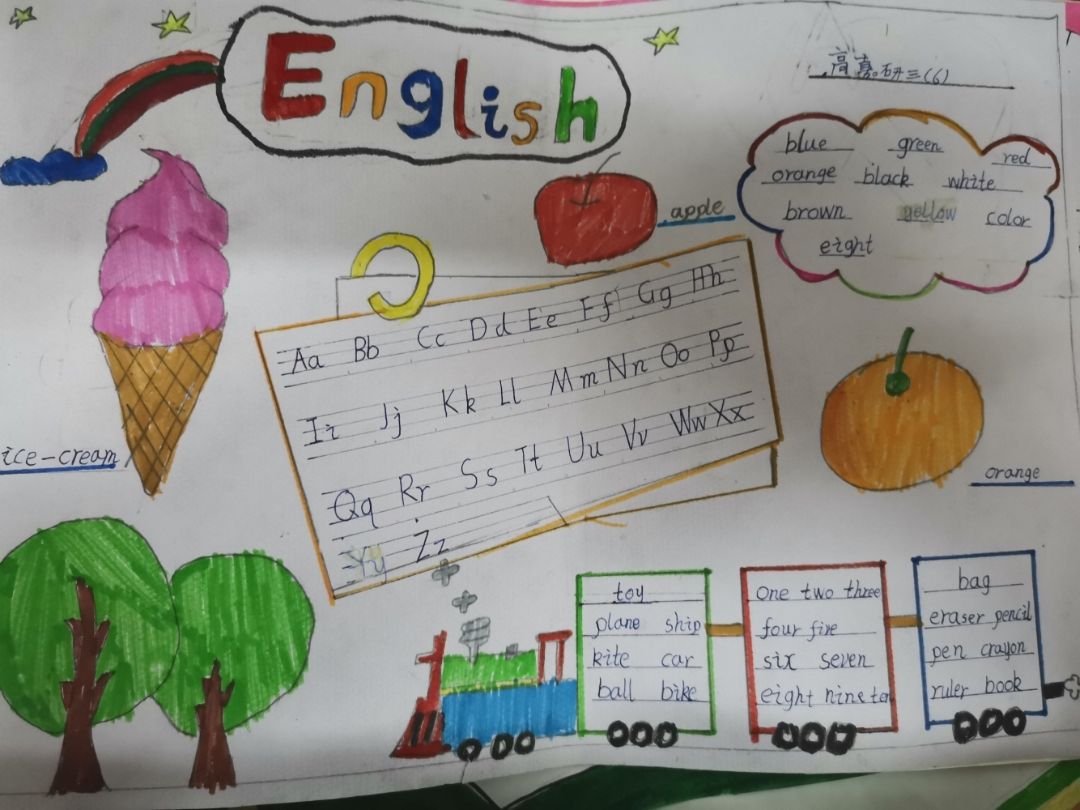 English
高嘉研三(6)
blue green red
orange black white
brown yellow color
eight
apple
Aa Bb Cc Dd Ee Ff Gg Hh
Ii Jj Kk Ll Mm Nn Oo Pp
Qq Rr Ss Tt Uu Vv Ww Xx
Yy Zz
ice-cream
orange
toy
plane ship
kite car
ball bike
one two three
four five
six seven
eight nine ten
bag
eraser pencil
pen crayon
ruler book